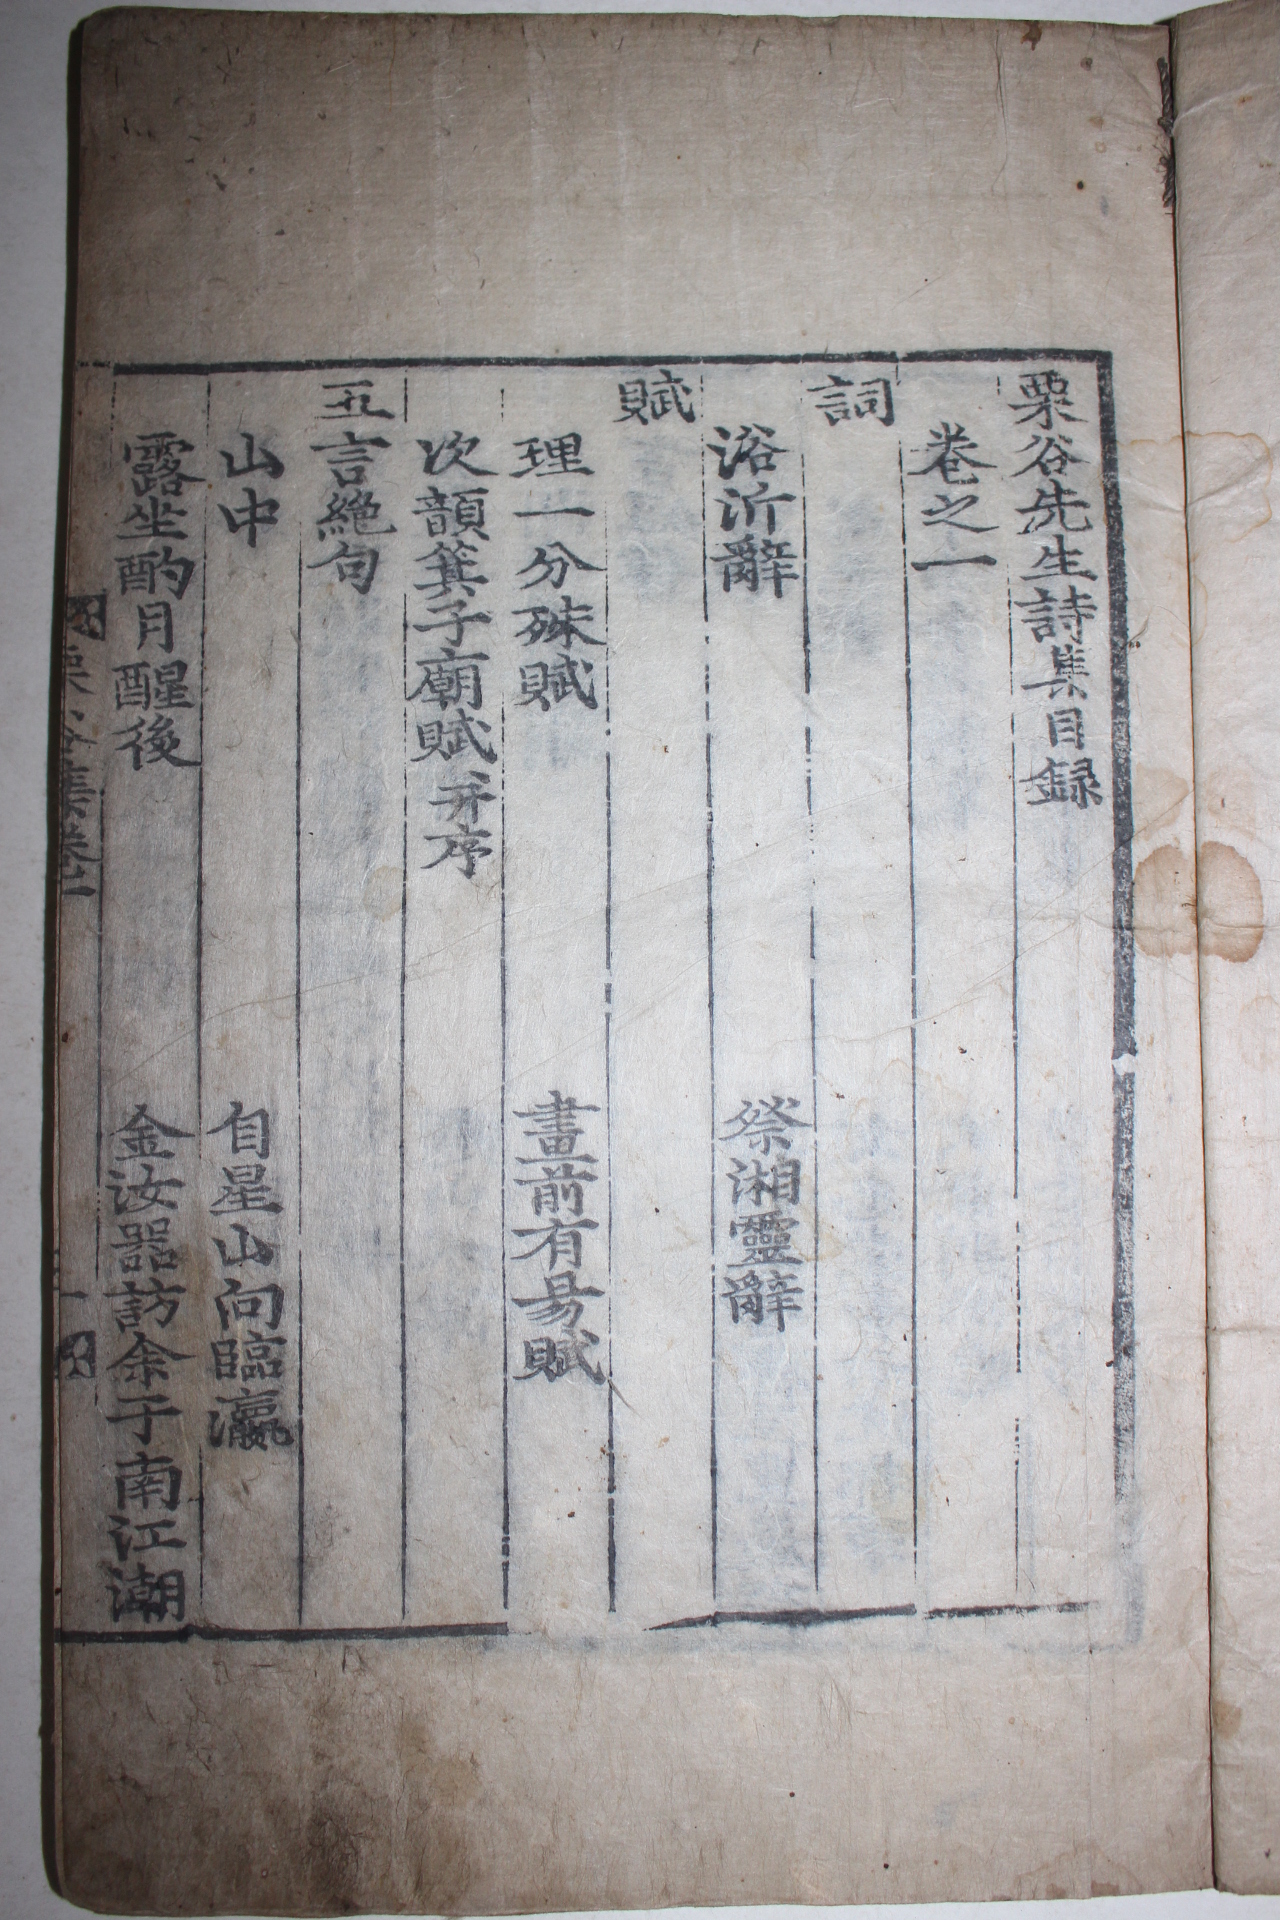 栗谷先生詩集目録
卷之一
詞
浴沂辭 祭湘靈辭
賦
理一分殊賦 畫前有易賦
次韻箕子廟賦 幷序
五言絶句
山中 自星山向臨瀛
露坐酌月醒後 金汝器訪余于南江潮
栗谷集卷
一